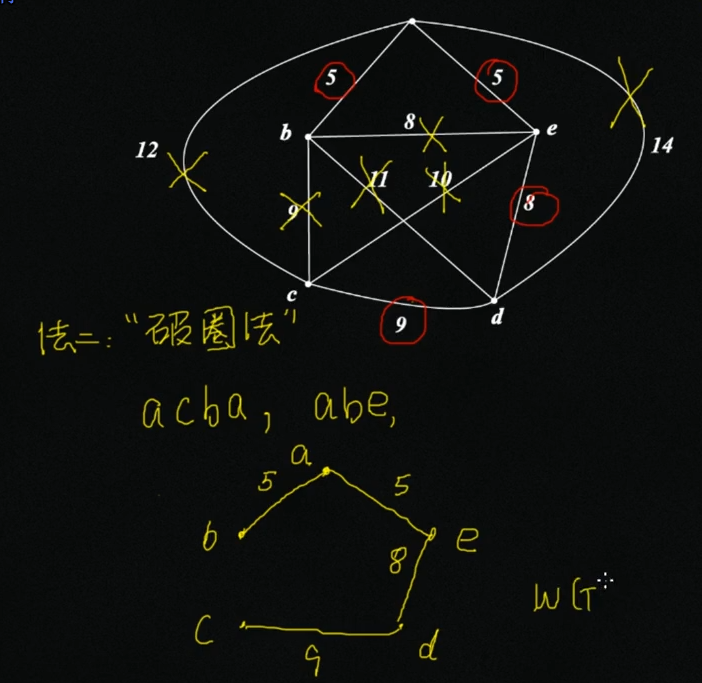 5
5
b
8
e
12
14
11
10
9
8
c
d
9
法二:“破圈法”
acba, abe,
a
5
5
b
e
8
W(T
c
d
9